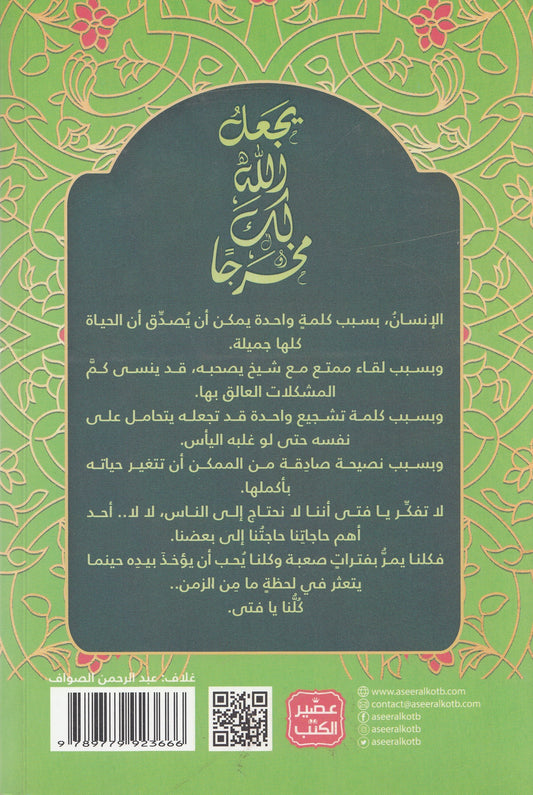 يجعل
الله
لك
مخرجًا
الإنسانُ، بسبب كلمةٍ واحدة يمكن أن يُصدِّق أن الحياة
كلها جميلة.
وبسبب لقاء ممتع مع شيخ يصحبه، قد ينسى كمَّ
المشكلات العالق بها.
وبسبب كلمة تشجيع واحدة قد تجعله يتحامل على
نفسه حتى لو غلبه اليأس.
وبسبب نصيحة صادِقة من الممكن أن تتغير حياته
بأكملها.
لا تفكِّر يا فتى أننا لا نحتاج إلى الناس، لا لا.. أحد
أهم حاجاتِنا حاجتُنا إلى بعضنا.
فكلنا يمرُّ بفتراتٍ صعبة وكلنا يُحب أن يؤخذَ بيدِه حينما
يتعثر في لحظةٍ ما مِن الزمن..
كُلُّنا يا فتى.
غلاف: عبد الرحمن الصواف
9 789779 923666
عصير
الكتب
www.aseeralkotb.com
contact@aseeralkotb.com
aseeralkotb
aseeralkotb
aseeralkotb